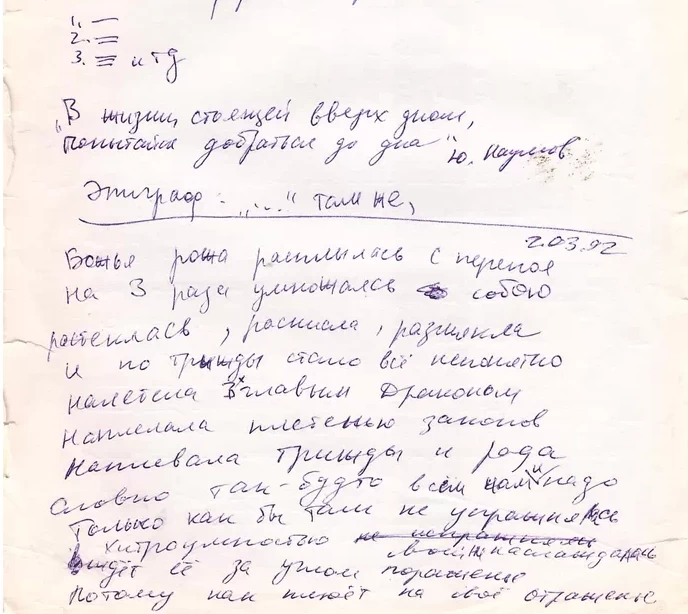 1. —
2. =
3. ≡ и тд
„В жизни, стоящей вверх дном,
попытайся добраться до дна" Ю. Наумов
Эпиграф: „..." там же,
2.03.92
Божья рожа расплылась с перепоя
на 3 раза умножаясь собою
растеклась, раскисла, размякла
и по трижды стало всё непонятно
налетела 3х главым Драконом
наплела плетенью законов
наплевала трижды и рада
Словно так-будто всем нам и надо
Только как бы там не упражнялась
хитроумностью не испражняясь
Своей не наслаждалась
ждёт её за углом поражение
Потому как плюёт на своё отраженье